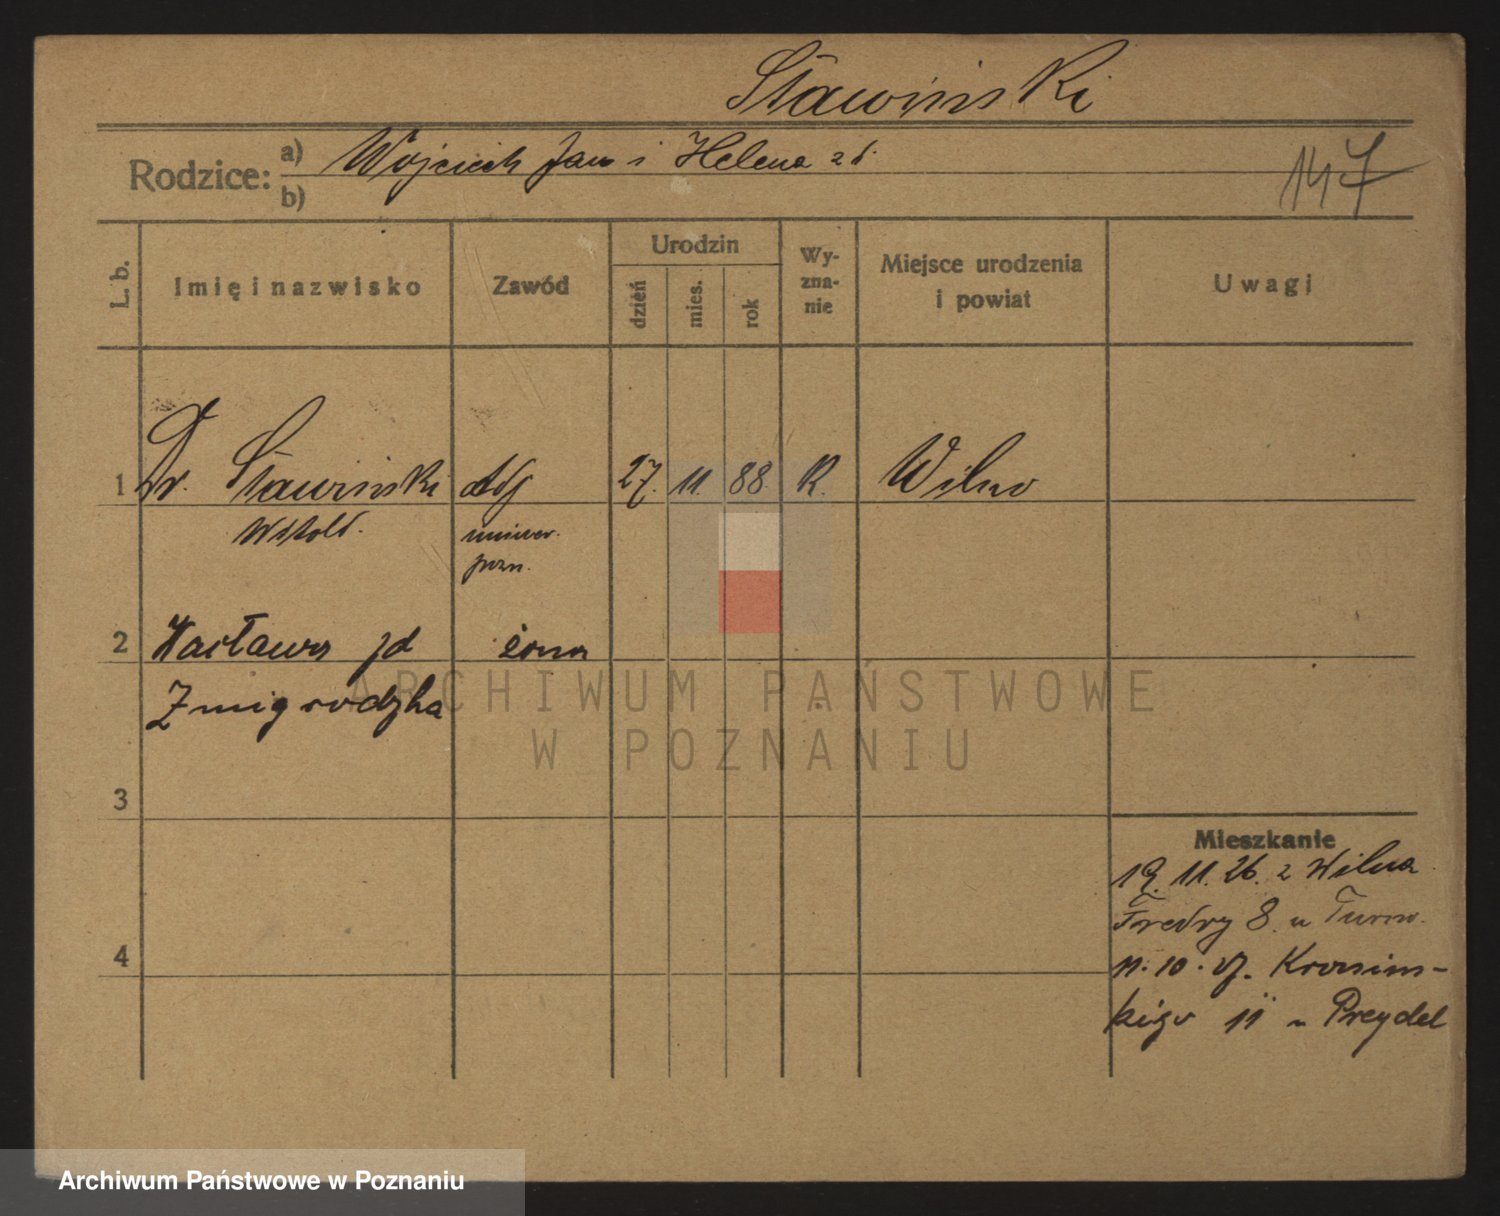 Sławiński
Rodzice: a) Wojciech Jan i Helena zd.
b)
147
L. b. Imię i nazwisko Zawód Urodzin dzień mies. rok Wyznanie Miejsce urodzenia i powiat Uwagi
1 Dr. Sławiński 27. 11. 88. R. Wilno
Witold. uniwer.
pozn.
2 Wacława żona
Żmigrodzka
3
4
Mieszkanie
19. 11. 26. z Wilna
Fredry 8. u
11. 10. 27. Krasiń-
skigo 11 u Preydel
ARCHIWUM PAŃSTWOWE
W POZNANIU
Archiwum Państwowe w Poznaniu